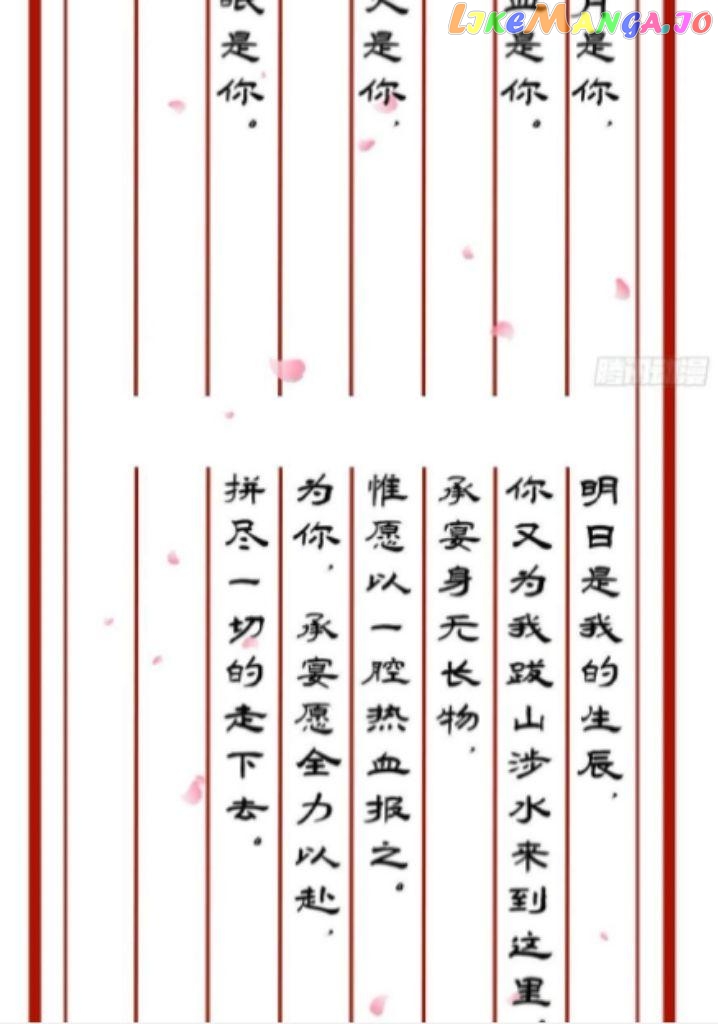 LIKEMANGA.IO
是你，
是你。
是你，
是你。
腾讯动漫
明日是我的生辰，
你又为我跋山涉水来到这里，
承宴身无长物，
惟愿以一腔热血报之。
为你，承宴愿全力以赴，
拼尽一切的走下去。